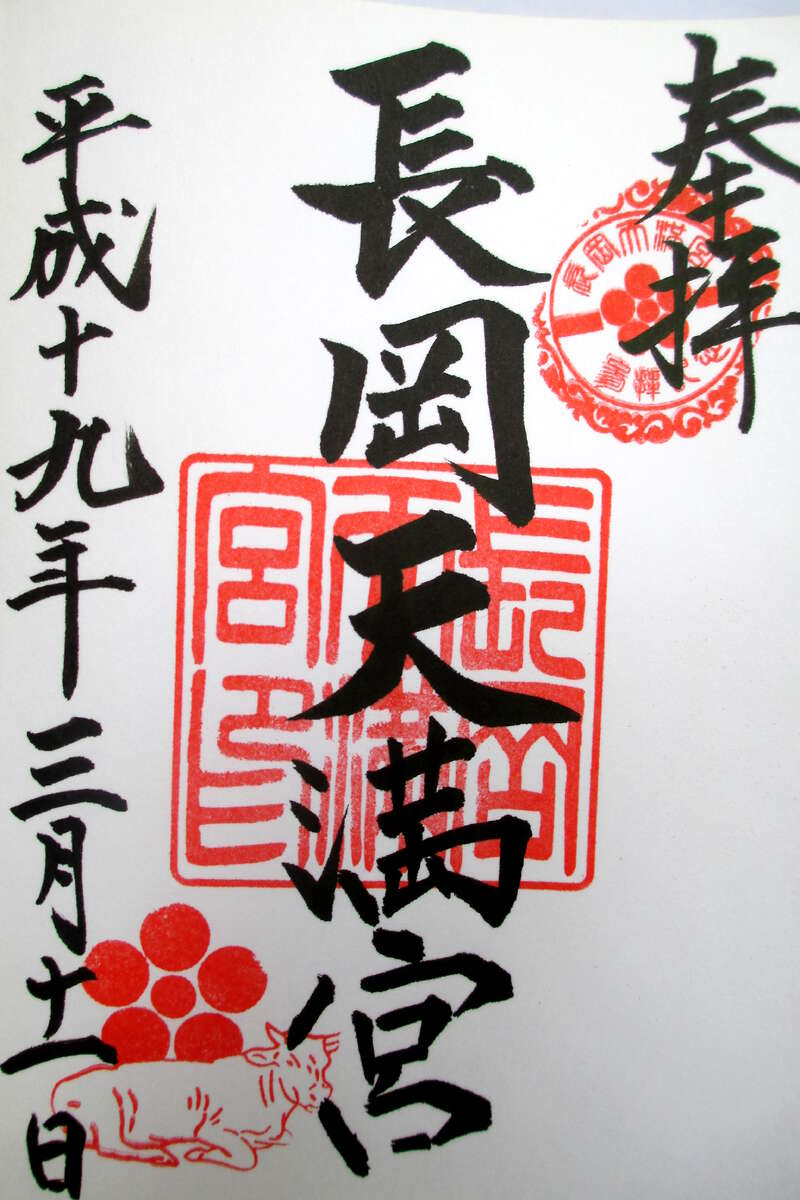 奉拝
長岡天満宮
平成十九年三月十一日
長岡天満宮印